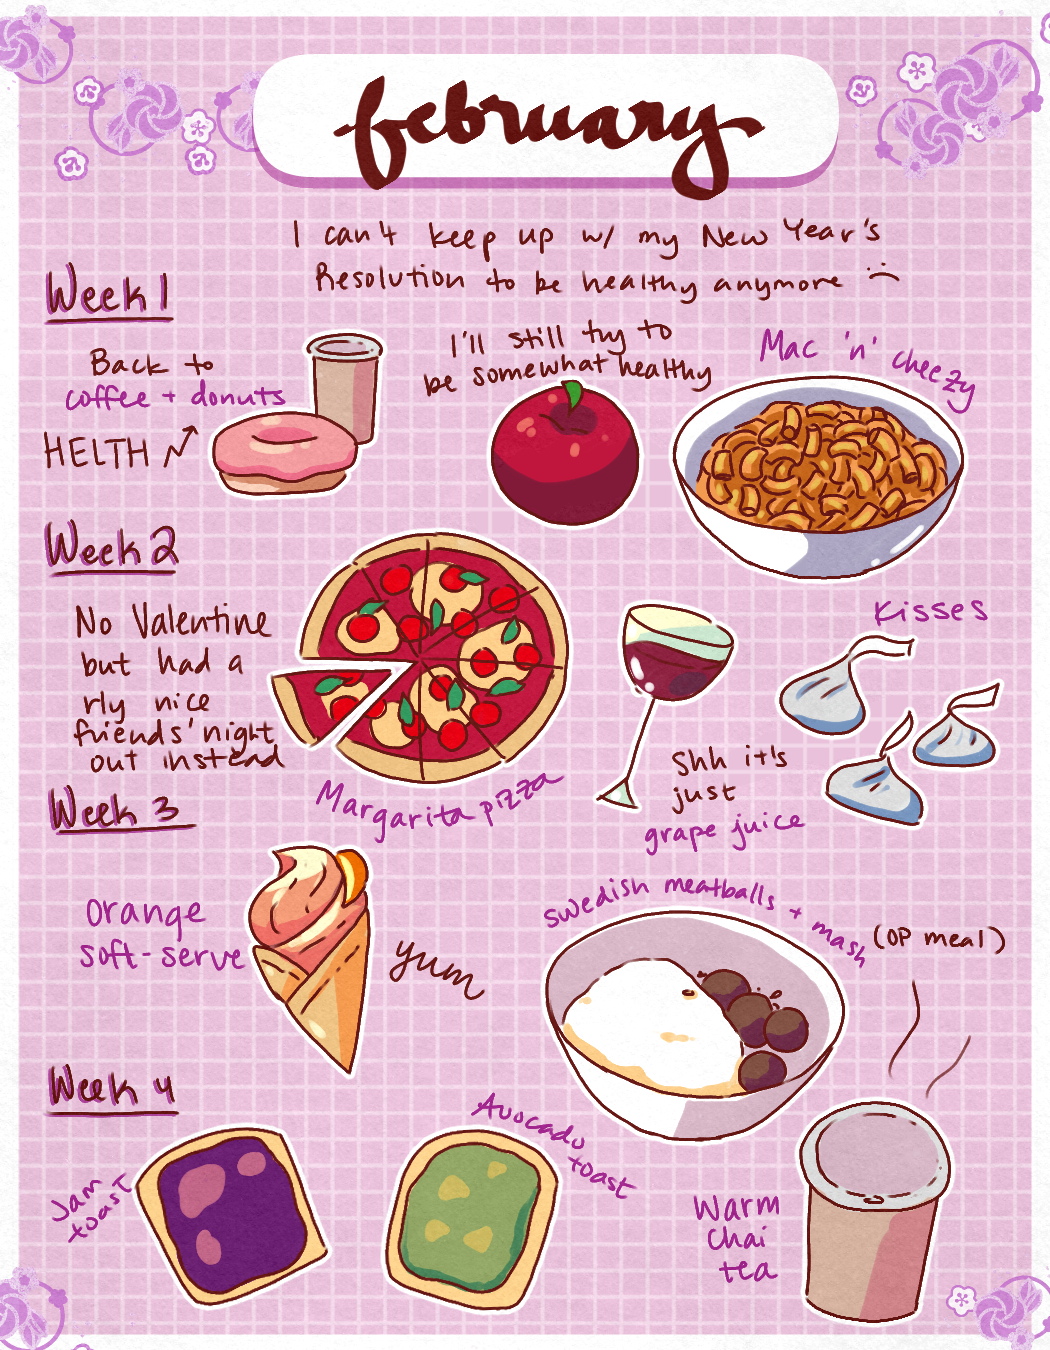 february
I can't keep up w/ my New Year's
Resolution to be healthy anymore :(
Week 1
Back to
coffee + donuts
HELTH
I'll still try to
be somewhat healthy
Mac 'n' cheezy
Week 2
No Valentine
but had a
rly nice
friends' night
out instead
Margarita pizza
Shh it's
just
grape juice
Kisses
Week 3
Orange
soft-serve
yum
Swedish meatballs + mash
(OP meal)
Week 4
Jam
toast
Avocado
toast
Warm
Chai
tea